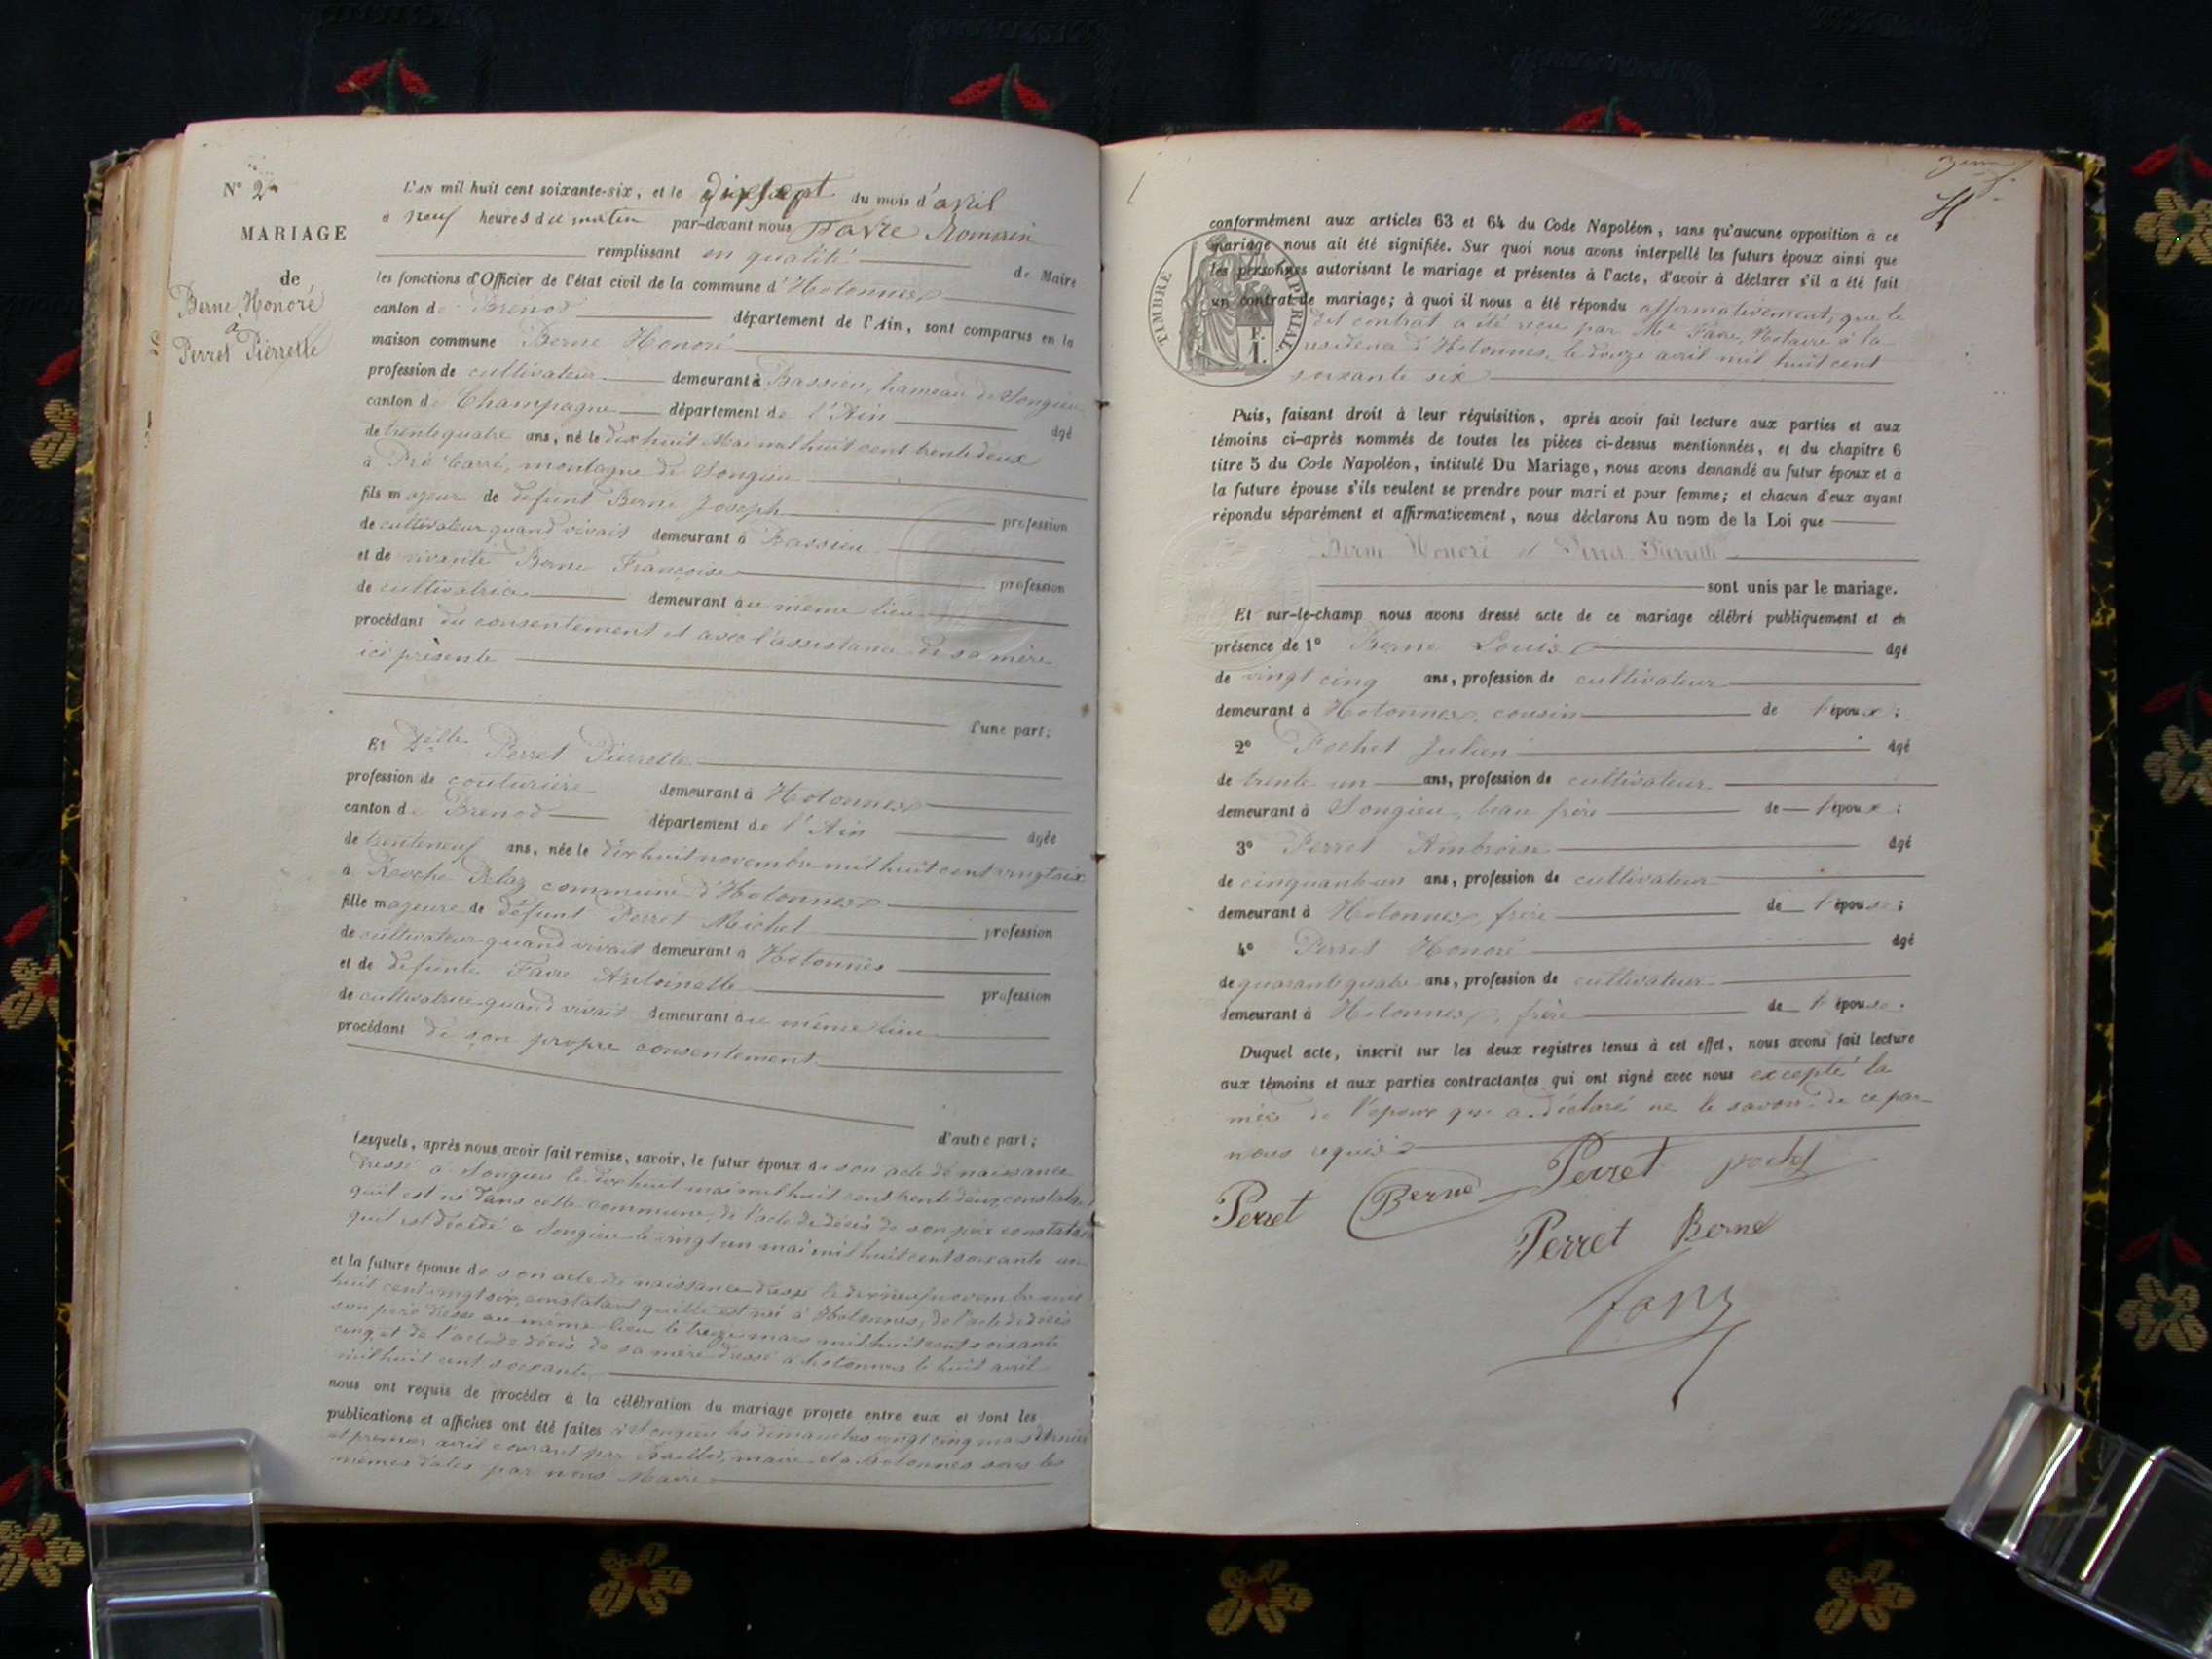 N° 2
MARIAGE
de
Berne Honoré
à
Perret Pierrette
L'AN mil huit cent soixante-six, et le dix sept du mois d'avril
à neuf heures du matin par-devant nous Favre Romain
remplissant en qualité de Maire
les fonctions d'Officier de l'état civil de la commune d'Hotonnes
canton de Brenod département de l'Ain, sont comparus en la
maison commune Berne Honoré
profession de cultivateur demeurant à Bassieu, hameau de Songieu
canton de Champagne département de l'Ain âgé
de trente quatre ans, né le dix huit Mai mil huit cent trente deux
à Pré Carré, montagne de Songieu
fils majeur de défunt Berne Joseph profession
de cultivateur quand vivait demeurant à Bassieu
et de vivante Berne Françoise profession
de cultivatrice demeurant au même lieu
procédant du consentement et avec l'assistance de sa mère
ici présente
d'une part;
Et Delle Perret Pierrette
profession de couturière demeurant à Hotonnes
canton de Brenod département de l'Ain âgée
de trente neuf ans, née le dix huit novembre mil huit cent vingt six
à Roche commune d'Hotonnes
fille majeure de défunt Perret Michel profession
de cultivateur quand vivait demeurant à Hotonnes
et de défunte Favre Antoinette profession
de cultivatrice quand vivait demeurant au même lieu
procédant de son propre consentement
d'autre part;
Lesquels, après nous avoir fait remise, savoir, le futur époux de son acte de naissance
dressé à Songieu le dix huit mai mil huit cent trente deux, constatant
qu'il est né dans cette commune, de l'acte de décès de son père constatant
qu'il est décédé à Songieu le vingt un mai mil huit cent soixante un
et la future épouse de son acte de naissance dressé le dix neuf novembre mil
huit cent vingt six, constatant qu'elle est née à Hotonnes, de l'acte de décès
son père dressé au même lieu le treize mars mil huit cent soixante
cinq et de l'acte de décès de sa mère dressé à hotonnes le huit avril
mil huit cent soixante
nous ont requis de procéder à la célébration du mariage projeté entre eux et dont les
publications et affiches ont été faites à Songieu les dimanches vingt cinq mars dernier
et premier avril courant par maire et à hotonnes sous les
mêmes dates par nous Maire
conformément aux articles 63 et 64 du Code Napoléon, sans qu'aucune opposition à ce
mariage nous ait été signifiée. Sur quoi nous avons interpellé les futurs époux ainsi que
les personnes autorisant le mariage et présentes à l'acte, d'avoir à déclarer s'il a été fait
un contrat de mariage; à quoi il nous a été répondu affirmativement, que le
dit contrat a été reçu par Me Favre, Notaire à la
residence d'Hotonnes, le douze avril mil huit cent
soixante six
TIMBRE IMPÉRIAL
F.
1.
Puis, faisant droit à leur réquisition, après avoir fait lecture aux parties et aux
témoins ci-après nommés de toutes les pièces ci-dessus mentionnées, et du chapitre 6
titre 5 du Code Napoléon, intitulé Du Mariage, nous avons demandé au futur époux et à
la future épouse s'ils veulent se prendre pour mari et pour femme; et chacun d'eux ayant
répondu séparément et affirmativement, nous déclarons Au nom de la Loi que
Berne Honoré et Perret Pierrette
sont unis par le mariage.
Et sur-le-champ nous avons dressé acte de ce mariage célébré publiquement et en
présence de 1° Berne Louis âgé
de vingt cinq ans, profession de cultivateur
demeurant à Hotonnes, cousin de l'époux;
2° Pochet Julien âgé
de trente un ans, profession de cultivateur
demeurant à Songieu, beau frère de l'époux;
3° Perret Ambroise âgé
de cinquante un ans, profession de cultivateur
demeurant à Hotonnes, frère de l'épouse;
4° Perret Honoré âgé
de quarante quatre ans, profession de cultivateur
demeurant à Hotonnes, frère de l'épouse.
Duquel acte, inscrit sur les deux registres tenus à cet effet, nous avons fait lecture
aux témoins et aux parties contractantes qui ont signé avec nous excepté la
mère de l'époux qui a déclaré ne le savoir de ce par
nous requise
Perret Berne Perret pochet
Perret Berne